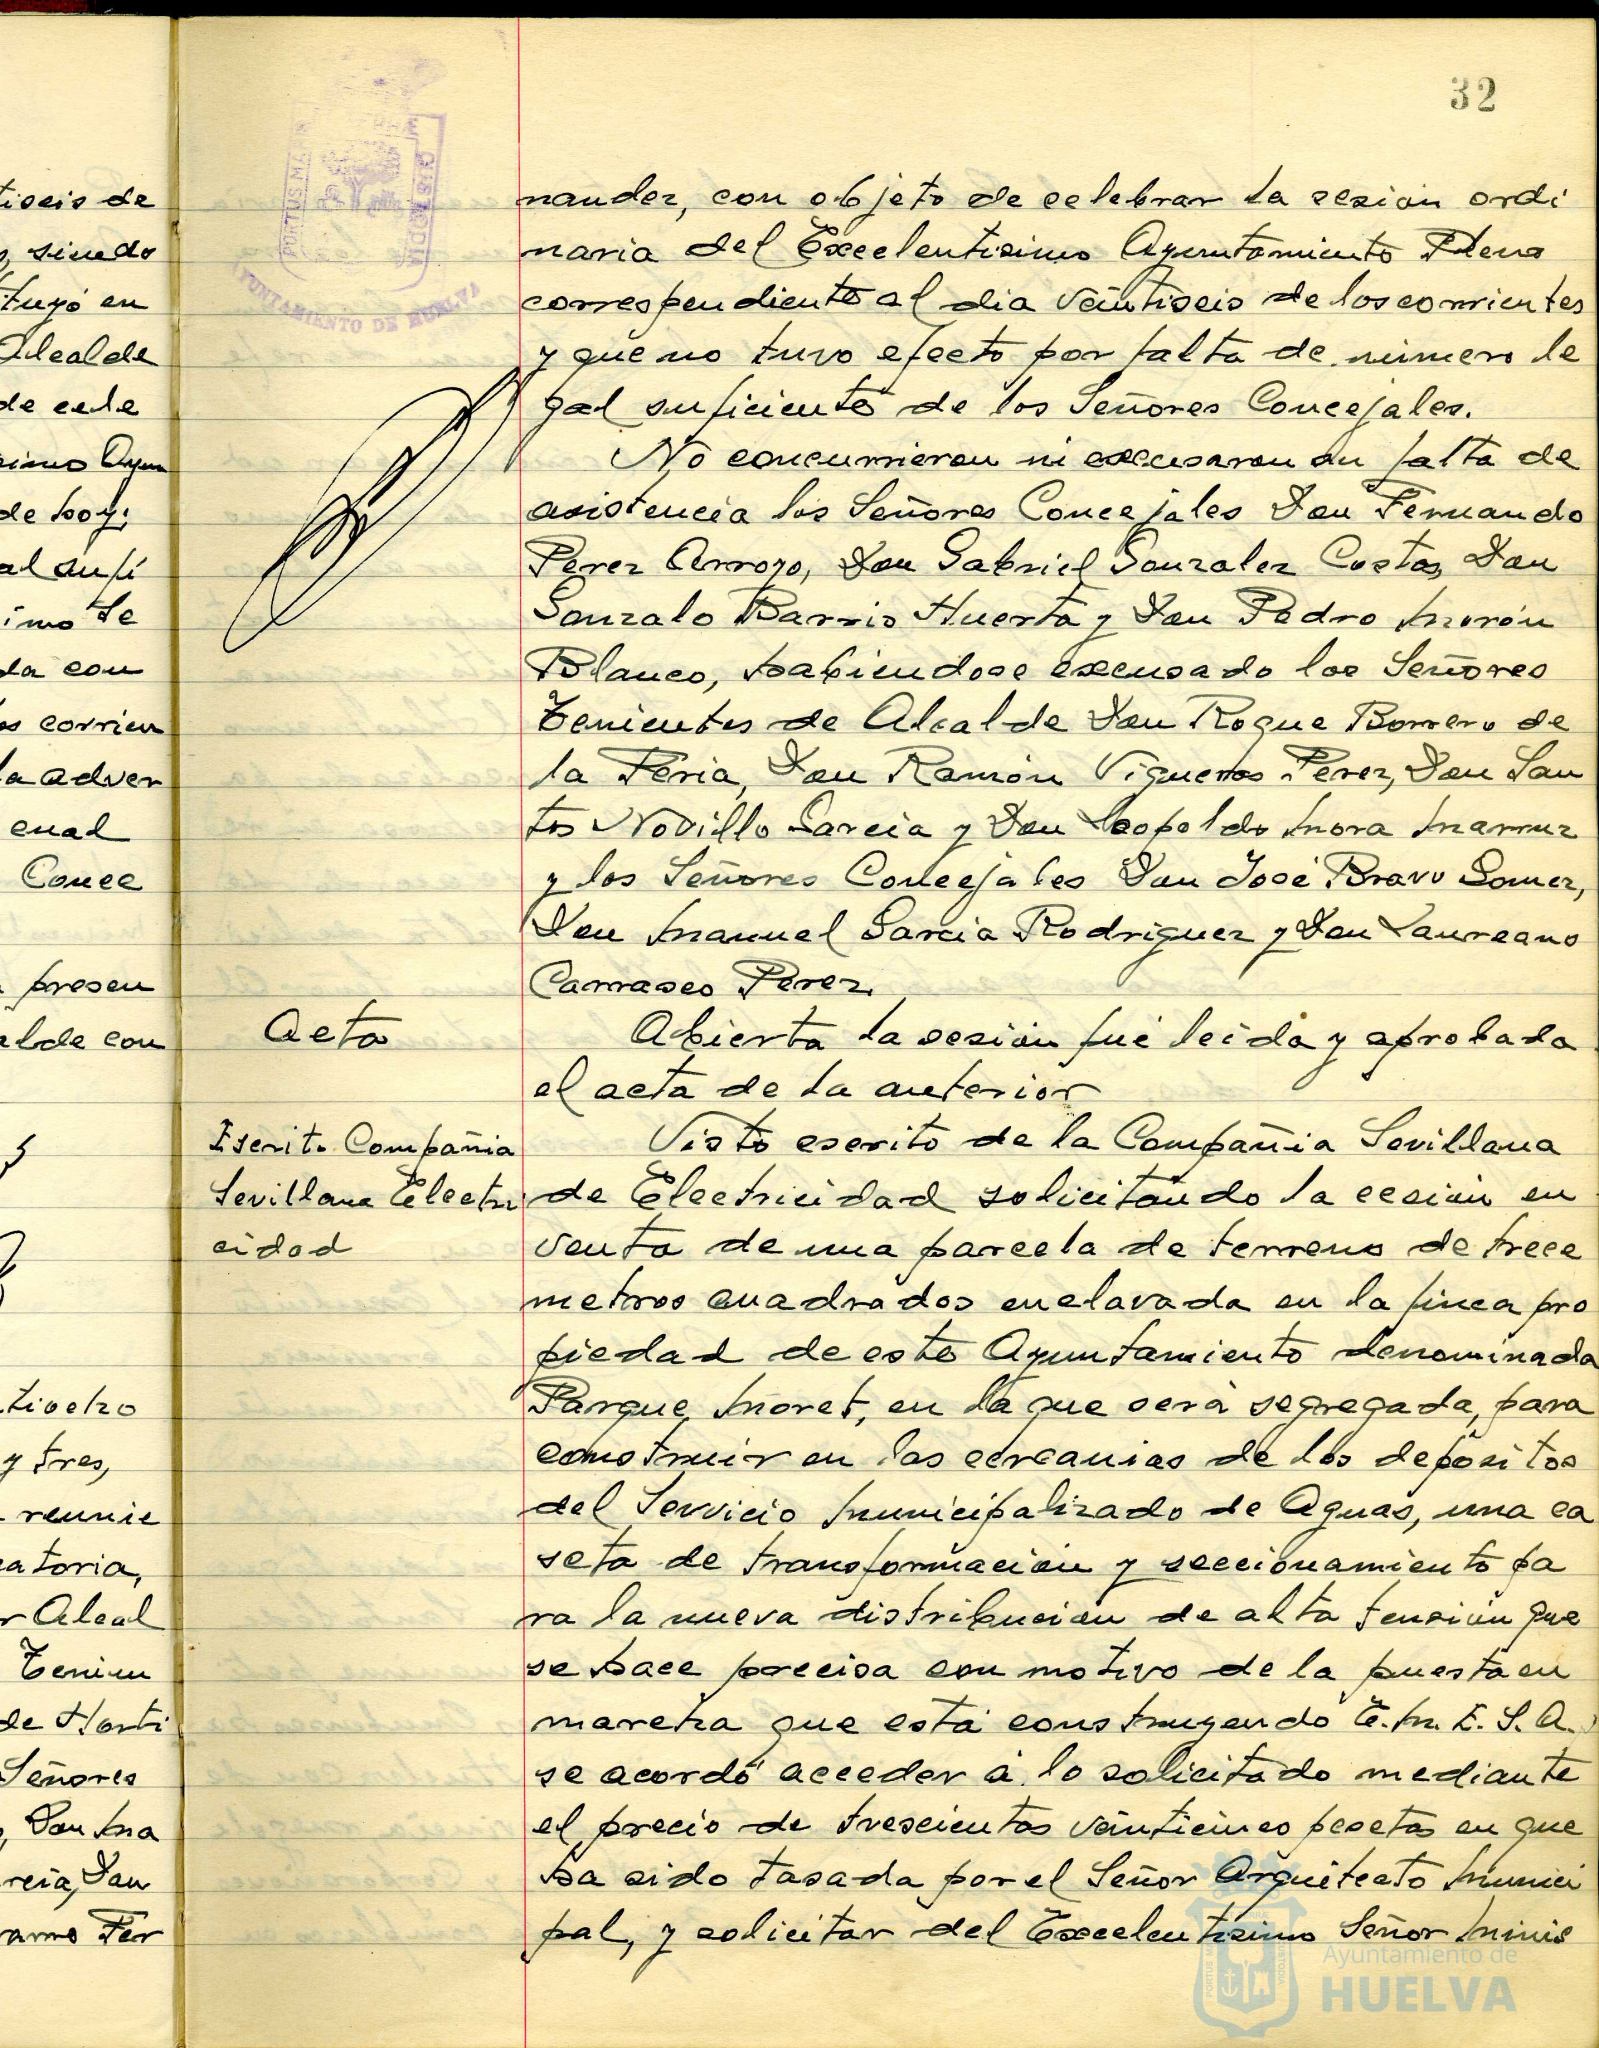 32
tiseis de
, siendo
tuyó en
Alcalde
de cele
simo Ayun
de hoy;
al sufi
imo Se
da con
os corrien
la adver
cual
Conce
presen
alde con
tiocho
y tres,
reunie
catoria,
r Alcal
Tenien
de Horti
Señores
, Don Ma
rcia, Don
ramo Fer
PORTUS MARIS
AYUNTAMIENTO DE HUELVA
nandez, con objeto de celebrar la sesión ordi
naria del Excelentisimo Ayuntamiento Pleno
correspendiente al dia veintiseis de los corrientes
y que no tuvo efecto por falta de número le
gal suficiente de los Señores Concejales.
No concurrieron ni excusaron su falta de
asistencia los Señores Concejales Don Fernando
Perez Arroyo, Don Gabriel Gonzalez Costas, Don
Gonzalo Barris Huerta y Don Pedro Morón
Blanco, habiendose excusado los Señores
Tenientes de Alcalde Don Roque Borrero de
la Feria, Don Ramón Vigueras Perez, Don San
tos Novillo Garcia y Don Leopoldo Mora Marruz
y los Señores Concejales Don José Bravo Gomez,
Don Manuel Garcia Rodriguez y Don Laureano
Carrasco Perez.
Acta
Abierta la sesión fué leida y aprobada
el acta de la anterior
Escrito Compañia
Sevillana Electri
cidad
Visto escrito de la Compañia Sevillana
de Electricidad solicitando la cesión en
venta de una parcela de terreno de trece
metros cuadrados enclavada en la finca pro
piedad de este Ayuntamiento denominada
Parque Moret, en la que será segregada, para
construir en las cercanias de los depósitos
del Servicio Municipalizado de Aguas, una ca
seta de transformación y seccionamiento pa
ra la nueva distribución de alta tensión que
se hace precisa con motivo de la puesta en
marcha que está construyendo E.M.E.S.A.
se acordó acceder á lo solicitado mediante
el precio de trescientas veinticinco pesetas en que
ha sido tasada por el Señor Arquitecto Munici
pal, y solicitar del Excelentisimo Señor Minis
Ayuntamiento de
HUELVA